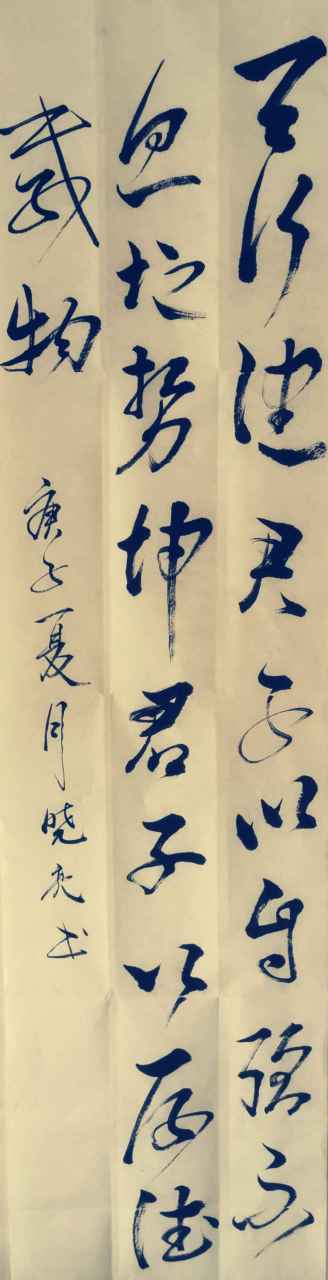 天行健君子以自强不
息地势坤君子以厚德
载物
庚子夏月晓亮书